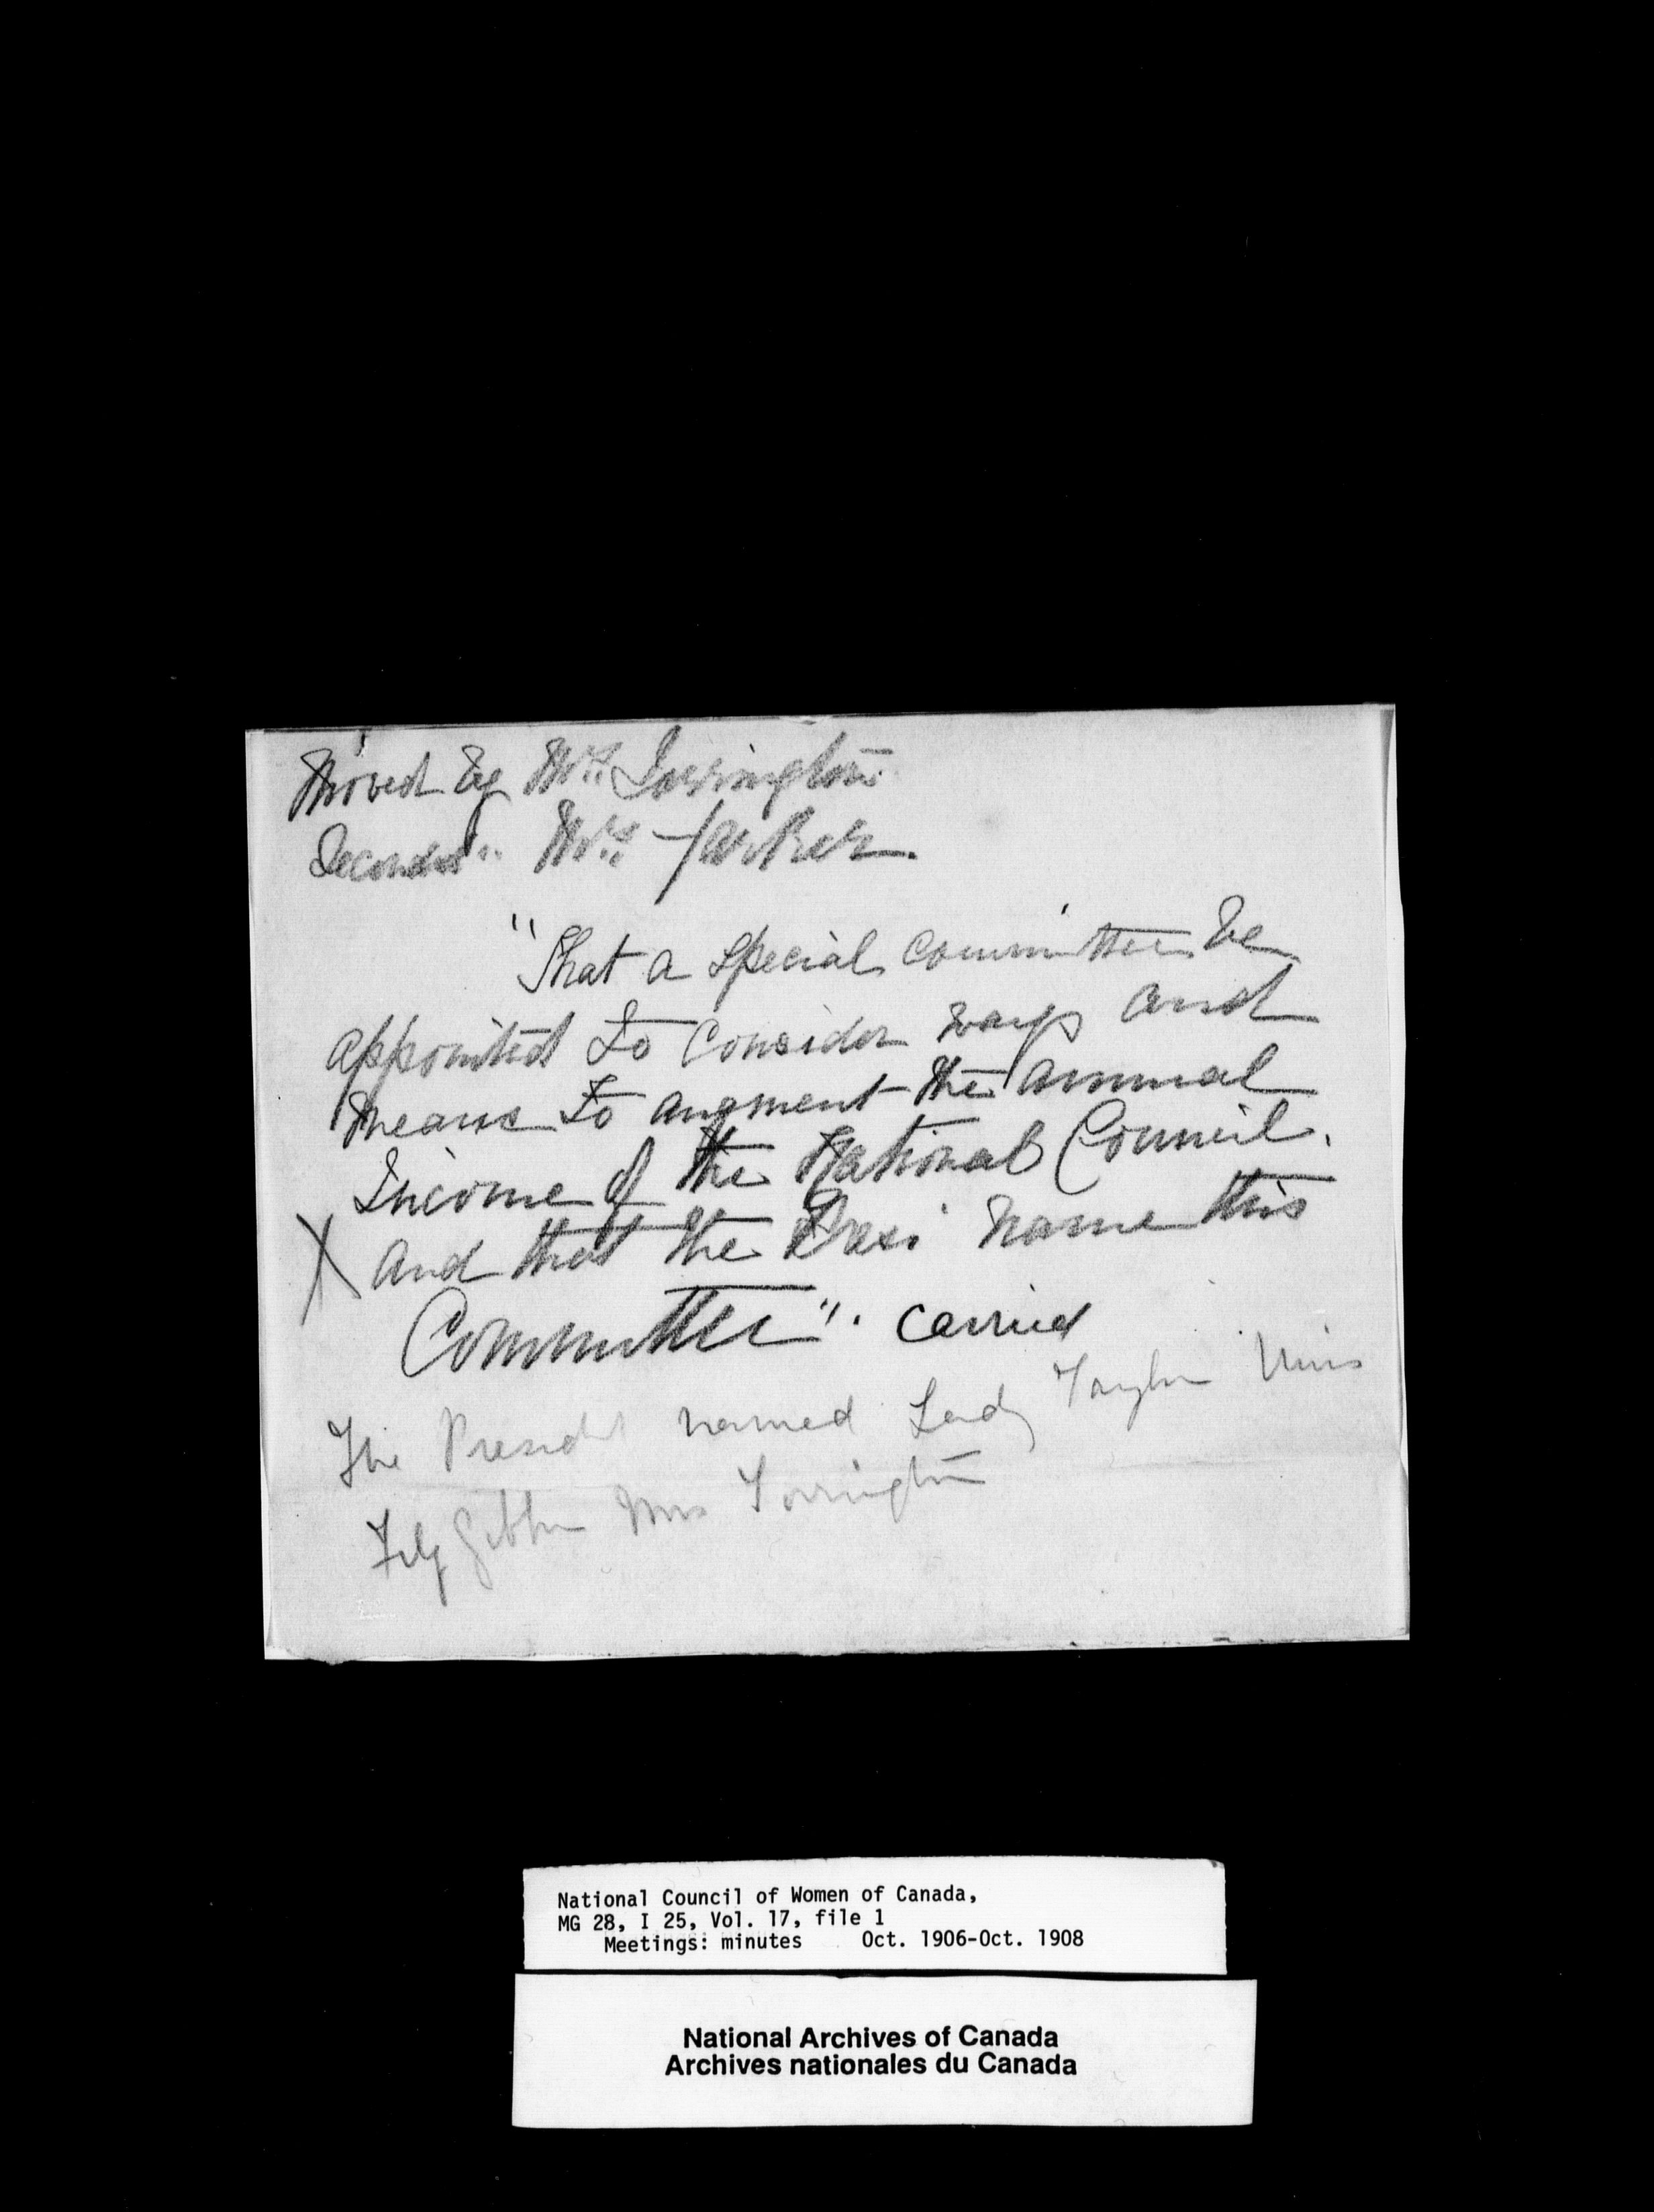 Moved by Mrs. Torrington.
Seconded " Mrs.
"That a special committee be
appointed to consider ways and
means to augment the annual
Income of the National Council.
X and that the Presi name this
Committee". carried
The Presidt named Lady Taylor Miss
FitzGibbon Mrs Torrington
National Council of Women of Canada,
MG 28, I 25, Vol. 17, file 1
Meetings: minutes Oct. 1906-Oct. 1908
National Archives of Canada
Archives nationales du Canada